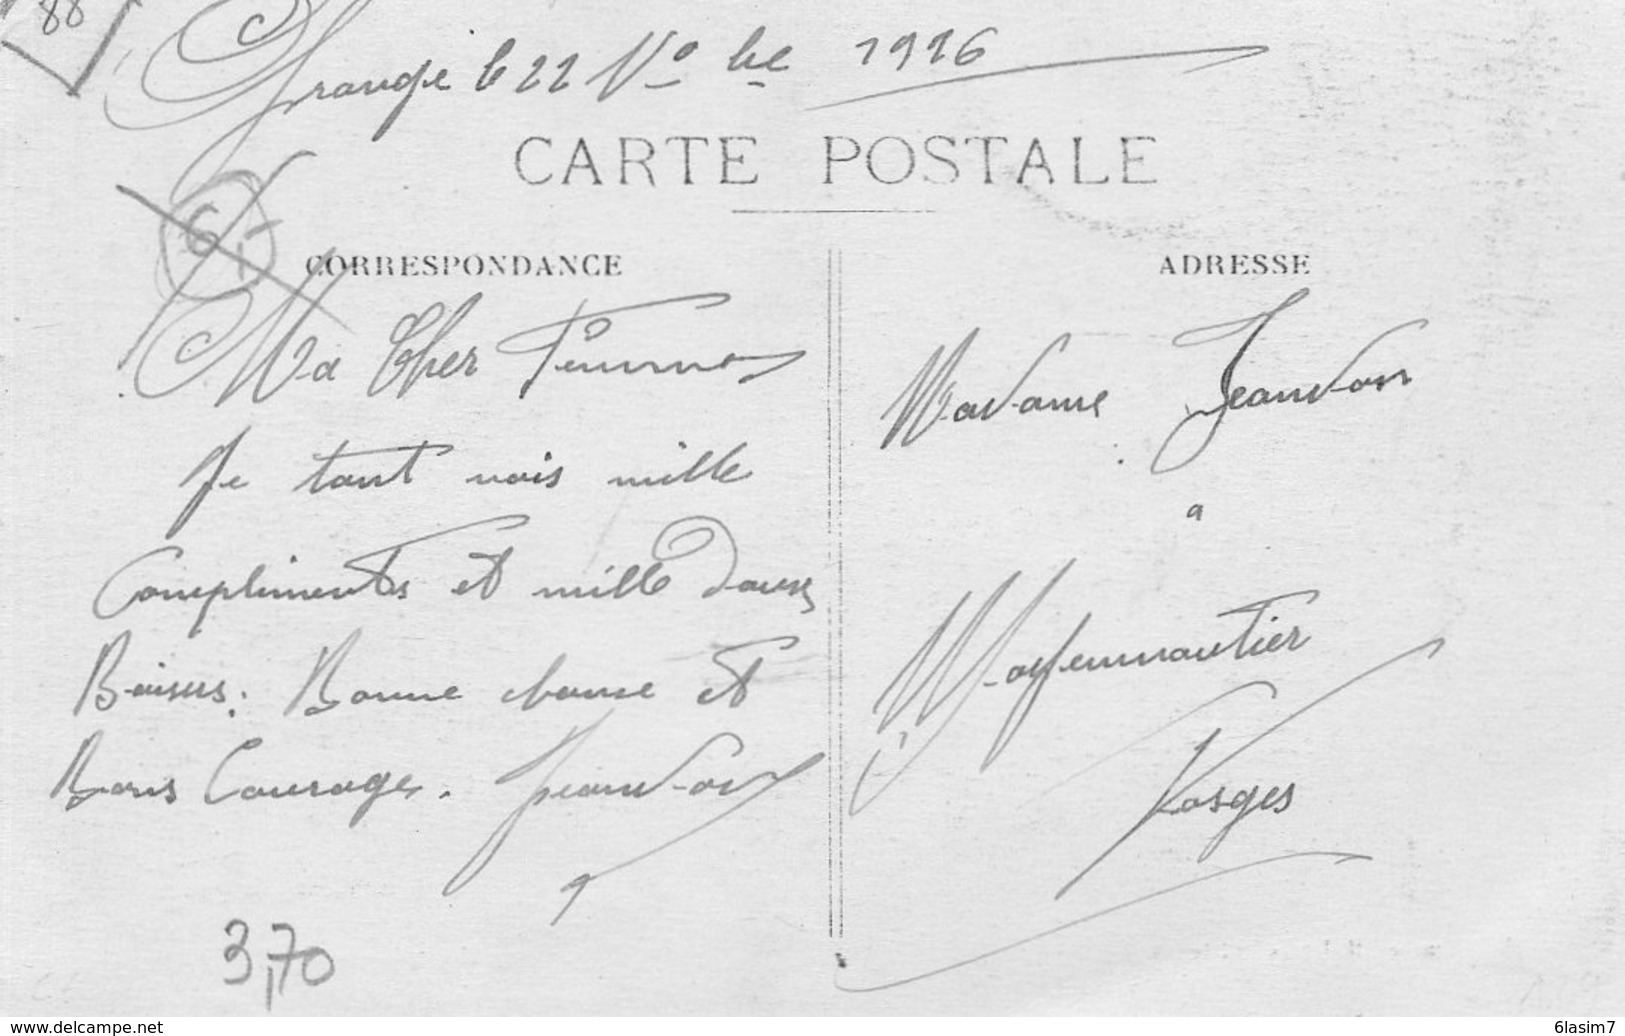 88
Frangé le 22 Nobre 1916
CARTE POSTALE
6,-
CORRESPONDANCE
Ma Cher Femme
Je tant vois mille
Compliments et mille Doux
Baisers. Bonne chance et
Bons Courage. Jeanvoix
3,70
ADRESSE
Madame Jeanvoix
a
Moyenmoutier
Vosges
www.delcampe.net
6lasim7